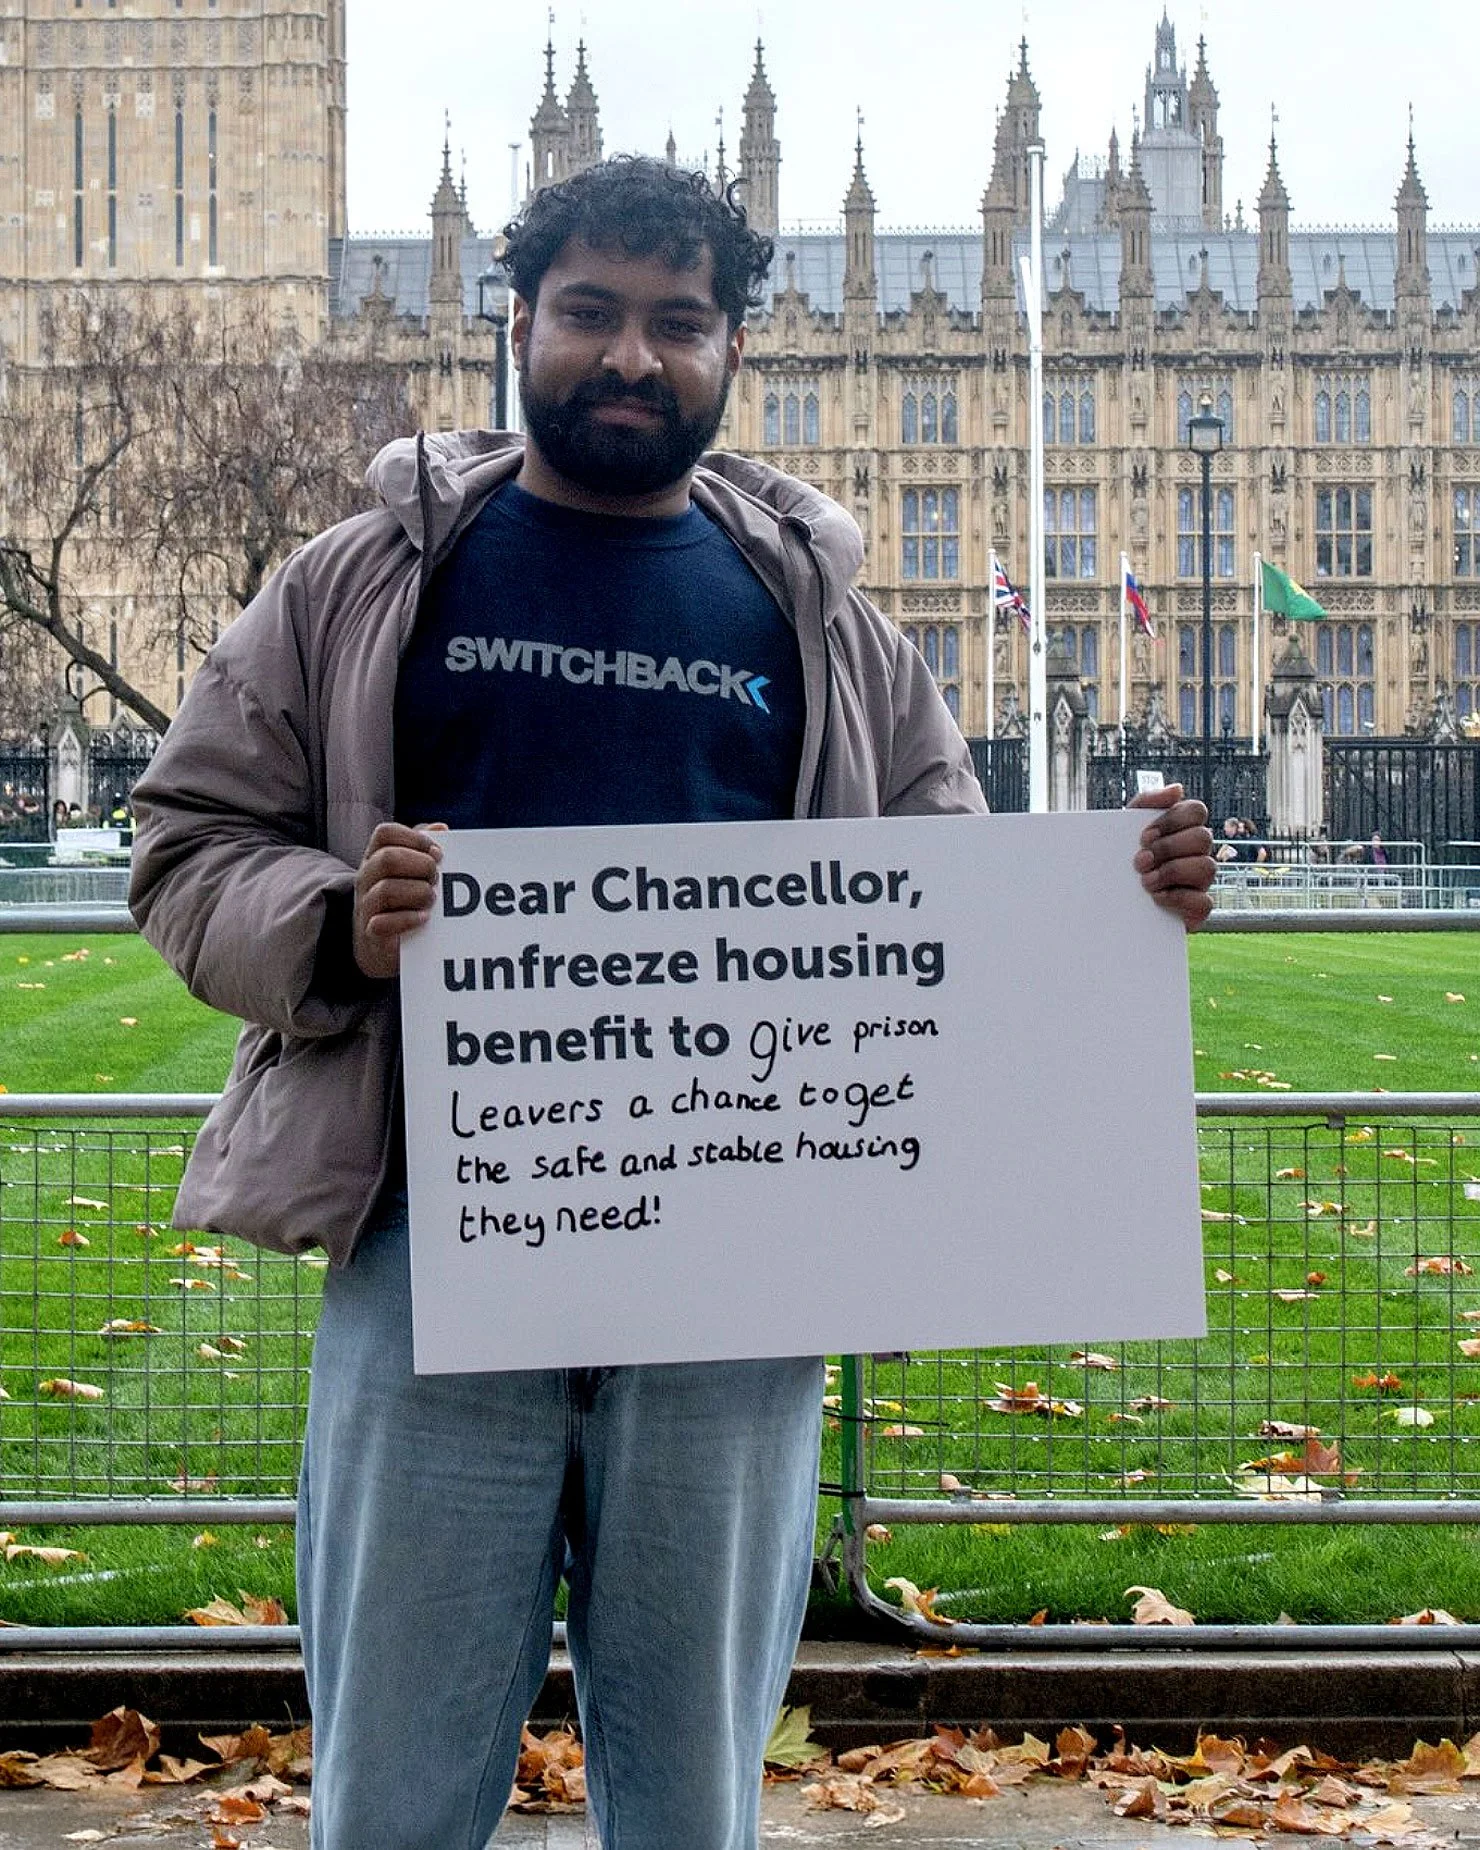 SWITCHBACK
STOP
Dear Chancellor,
unfreeze housing
benefit to give prison
Leavers a chance to get
the safe and stable housing
they need!